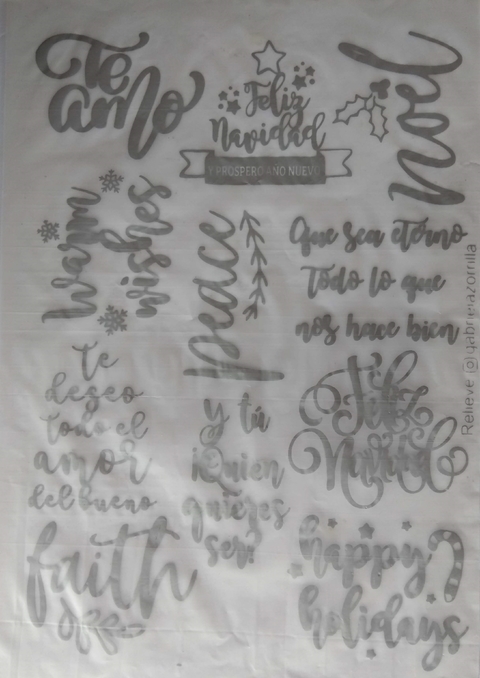 Te
amo
Feliz
Navidad
Y PROSPERO AÑO NUEVO
noel
warm
wishes
peace
Que sea eterno
Todo lo que
nos hace bien
te
deseo
todo el
amor
del bueno
y tú
¿Quien
quieres
ser?
Feliz
Navidad
faith
happy
holidays
Relieve @gabrielazorrilla